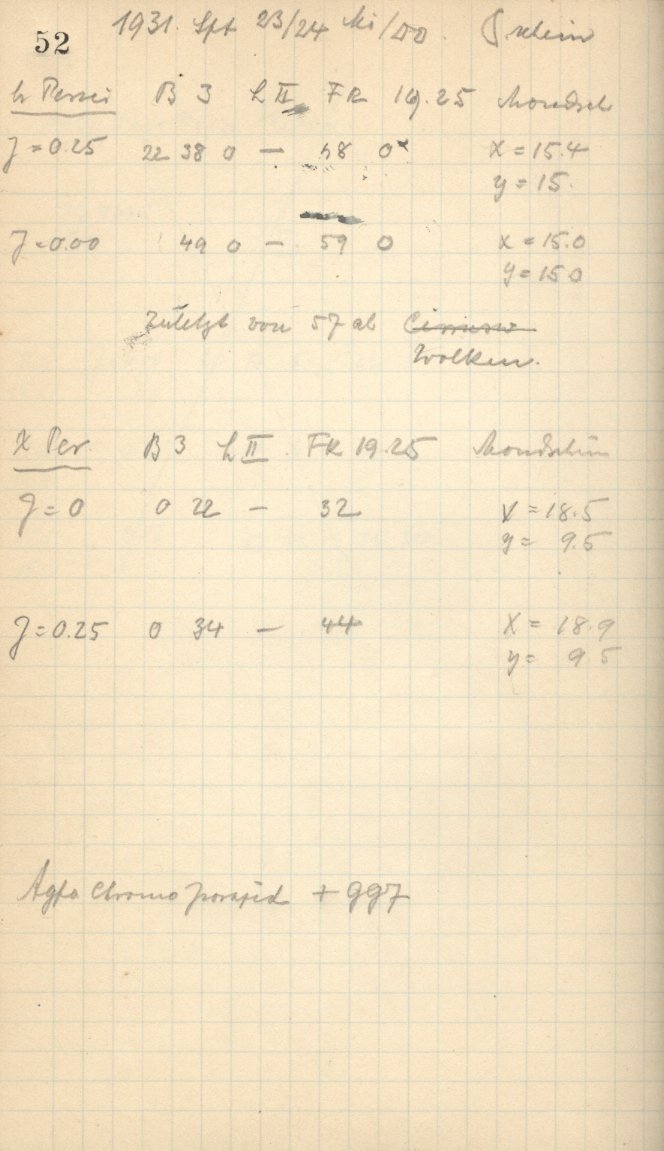 52
1931. Spt 23/24 Mi/Do.
h Persei B 3 L II FR 19.25 Mondsch
J = 0.25 22 38 0 — 48 0 x = 15.4
y = 15.
J = 0.00 49 0 — 59 0 x = 15.0
y = 15 0
Zuletzt von 57 ab Cirrus
Wolken.
X Per B 3 L II FR 19.25 Mondschein
J = 0 0 22 — 32 x = 18.5
y = 9.5
J = 0.25 0 34 — 44 x = 18.9
y = 9 5
Agfa Chromo Isorapid + 997